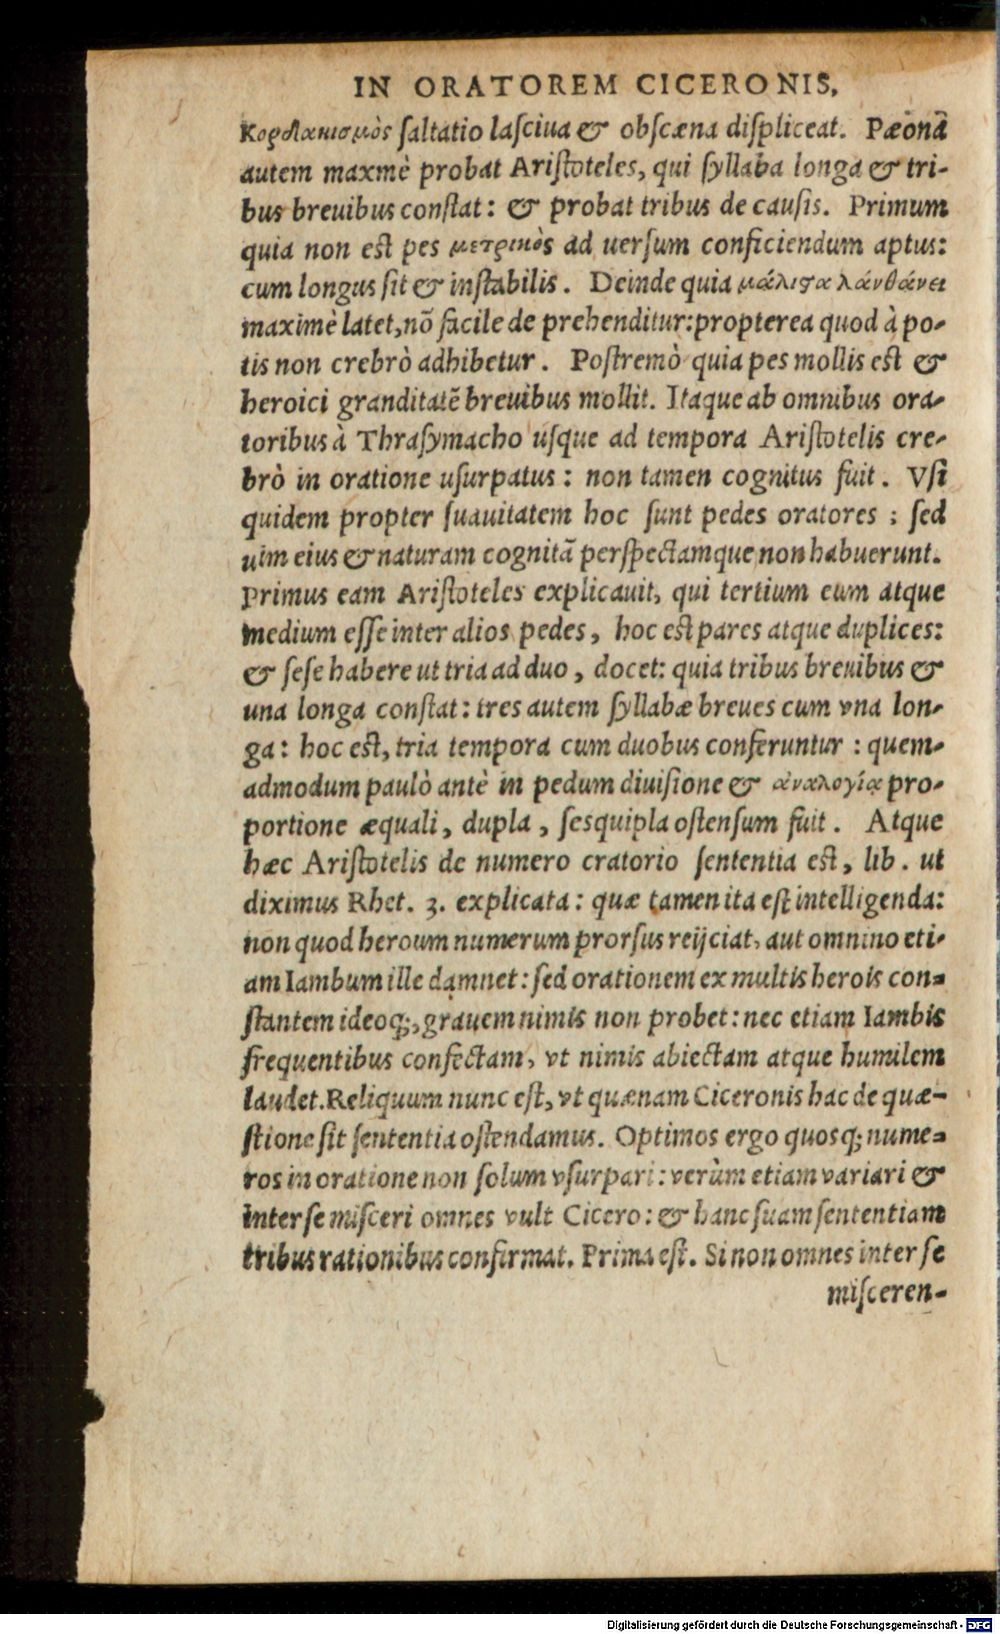 IN ORATOREM CICERONIS,
Κορδακισμὸς ſaltatio laſciua & obſcæna diſpliceat. Pæonā
autem maxmè probat Ariſtoteles, qui ſyllaba longa & tri-
bus breuibus conſtat: & probat tribus de cauſis. Primum
quia non eſt pes μετρικὸs ad uerſum conficiendum aptus:
cum longus ſit & inſtabilis. Deinde quia μάλιϛα λάνθάνει
maximè latet, nō facile de prehenditur: propterea quod à po-
tis non crebrò adhibetur. Poſtremò quia pes mollis eſt &
heroici granditatē breuibus mollit. Itaque ab omnibus ora-
toribus à Thraſymacho uſque ad tempora Ariſtotelis cre-
brò in oratione uſurpatus: non tamen cognitus fuit. Vſi
quidem propter ſuauitatem hoc ſunt pedes oratores; ſed
uim eius & naturam cognitā perſpectamque non habuerunt.
Primus eam Ariſtoteles explicauit, qui tertium eum atque
medium eſſe inter alios pedes, hoc eſt pares atque duplices:
& ſeſe habere ut tria ad duo, docet: quia tribus breuibus &
una longa conſtat: tres autem ſyllabæ breues cum vna lon-
ga: hoc eſt, tria tempora cum duobus conferuntur: quem-
admodum paulò antè in pedum diuiſione & ἀναλογίᾳ pro-
portione æquali, dupla, ſesquipla oſtenſum fuit. Atque
hæc Ariſtotelis de numero cratorio ſententia eſt, lib. ut
diximus Rhet. 3. explicata: quæ tamen ita eſt intelligenda:
non quod heroum numerum prorſus reijciat, aut omnino eti-
am Iambum ille damnet: ſed orationem ex multis herois con-
ſtantem ideoq;, grauem nimis non probet: nec etiam Iambis
frequentibus confectam, vt nimis abiectam atque humilem
laudet. Reliquum nunc eſt, vt quænam Ciceronis hac de quæ-
ſtione ſit ſententia oſtendamus. Optimos ergo quosq; nume-
ros in oratione non ſolum vſurpari: verùm etiam variari &
inter ſe miſceri omnes vult Cicero: & hanc ſuam ſententiam
tribus rationibus confirmat. Prima eſt. Si non omnes inter ſe
miſceren-
Digitalisierung gefördert durch die Deutsche Forschungsgemeinschaft - DFG